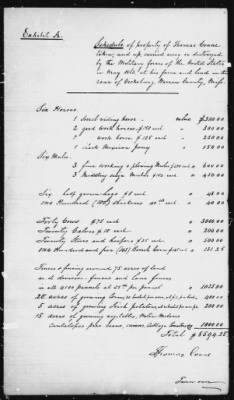 Exhibit A.
Schedule of property of Thomas Cone
taken, and up, carried away or destroyed
by the Military forces of the United States
in May 1863, at his farm and land in the
rear of Vicksburg Warren County, Miss.
Six Horses.
1 Sorrel riding horse value $200.00
2 good work horses @ 150 each 300.00
2 work horses @ 125 each 250.00
1 Mexican Pony 150.00
Six Mules.
3 fine working & plowing Mules @ 200 each 600.00
3 Middling large Mules @ 150 each 450.00
Six half grown hogs $8 each 48.00
One Hundred (100) Chickens 40cts each 40.00
Forty Cows $75 each 3000.00
Twenty Calves $10 each 200.00
Twenty Steers and heifers $25 each 500.00
One Hundred & five (105) Corn
Fences & fencing around 75 acres of land
and division fences and lane fences
in all 4100 pannels at 25cts per pannel 1025.00
28 acres of growing Corn
5 acres of growing Irish potatoes 200.00
15 acres of growing vegetables, Water Melons
Cantelopes peas beans, Cabbage 1000.00
Total
Thomas Cone
Turn over